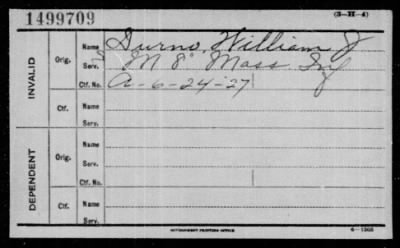 1499709 (3-H-4)
INVALID Orig. Name Durno, William J
Serv. M 8" Mass. Inf
Ctf. No. A-6-24-27
Ctf. Name
Serv.
DEPENDENT Orig. Name
Serv.
Ctf. No.
Ctf. Name
Serv.
GOVERNMENT PRINTING OFFICE